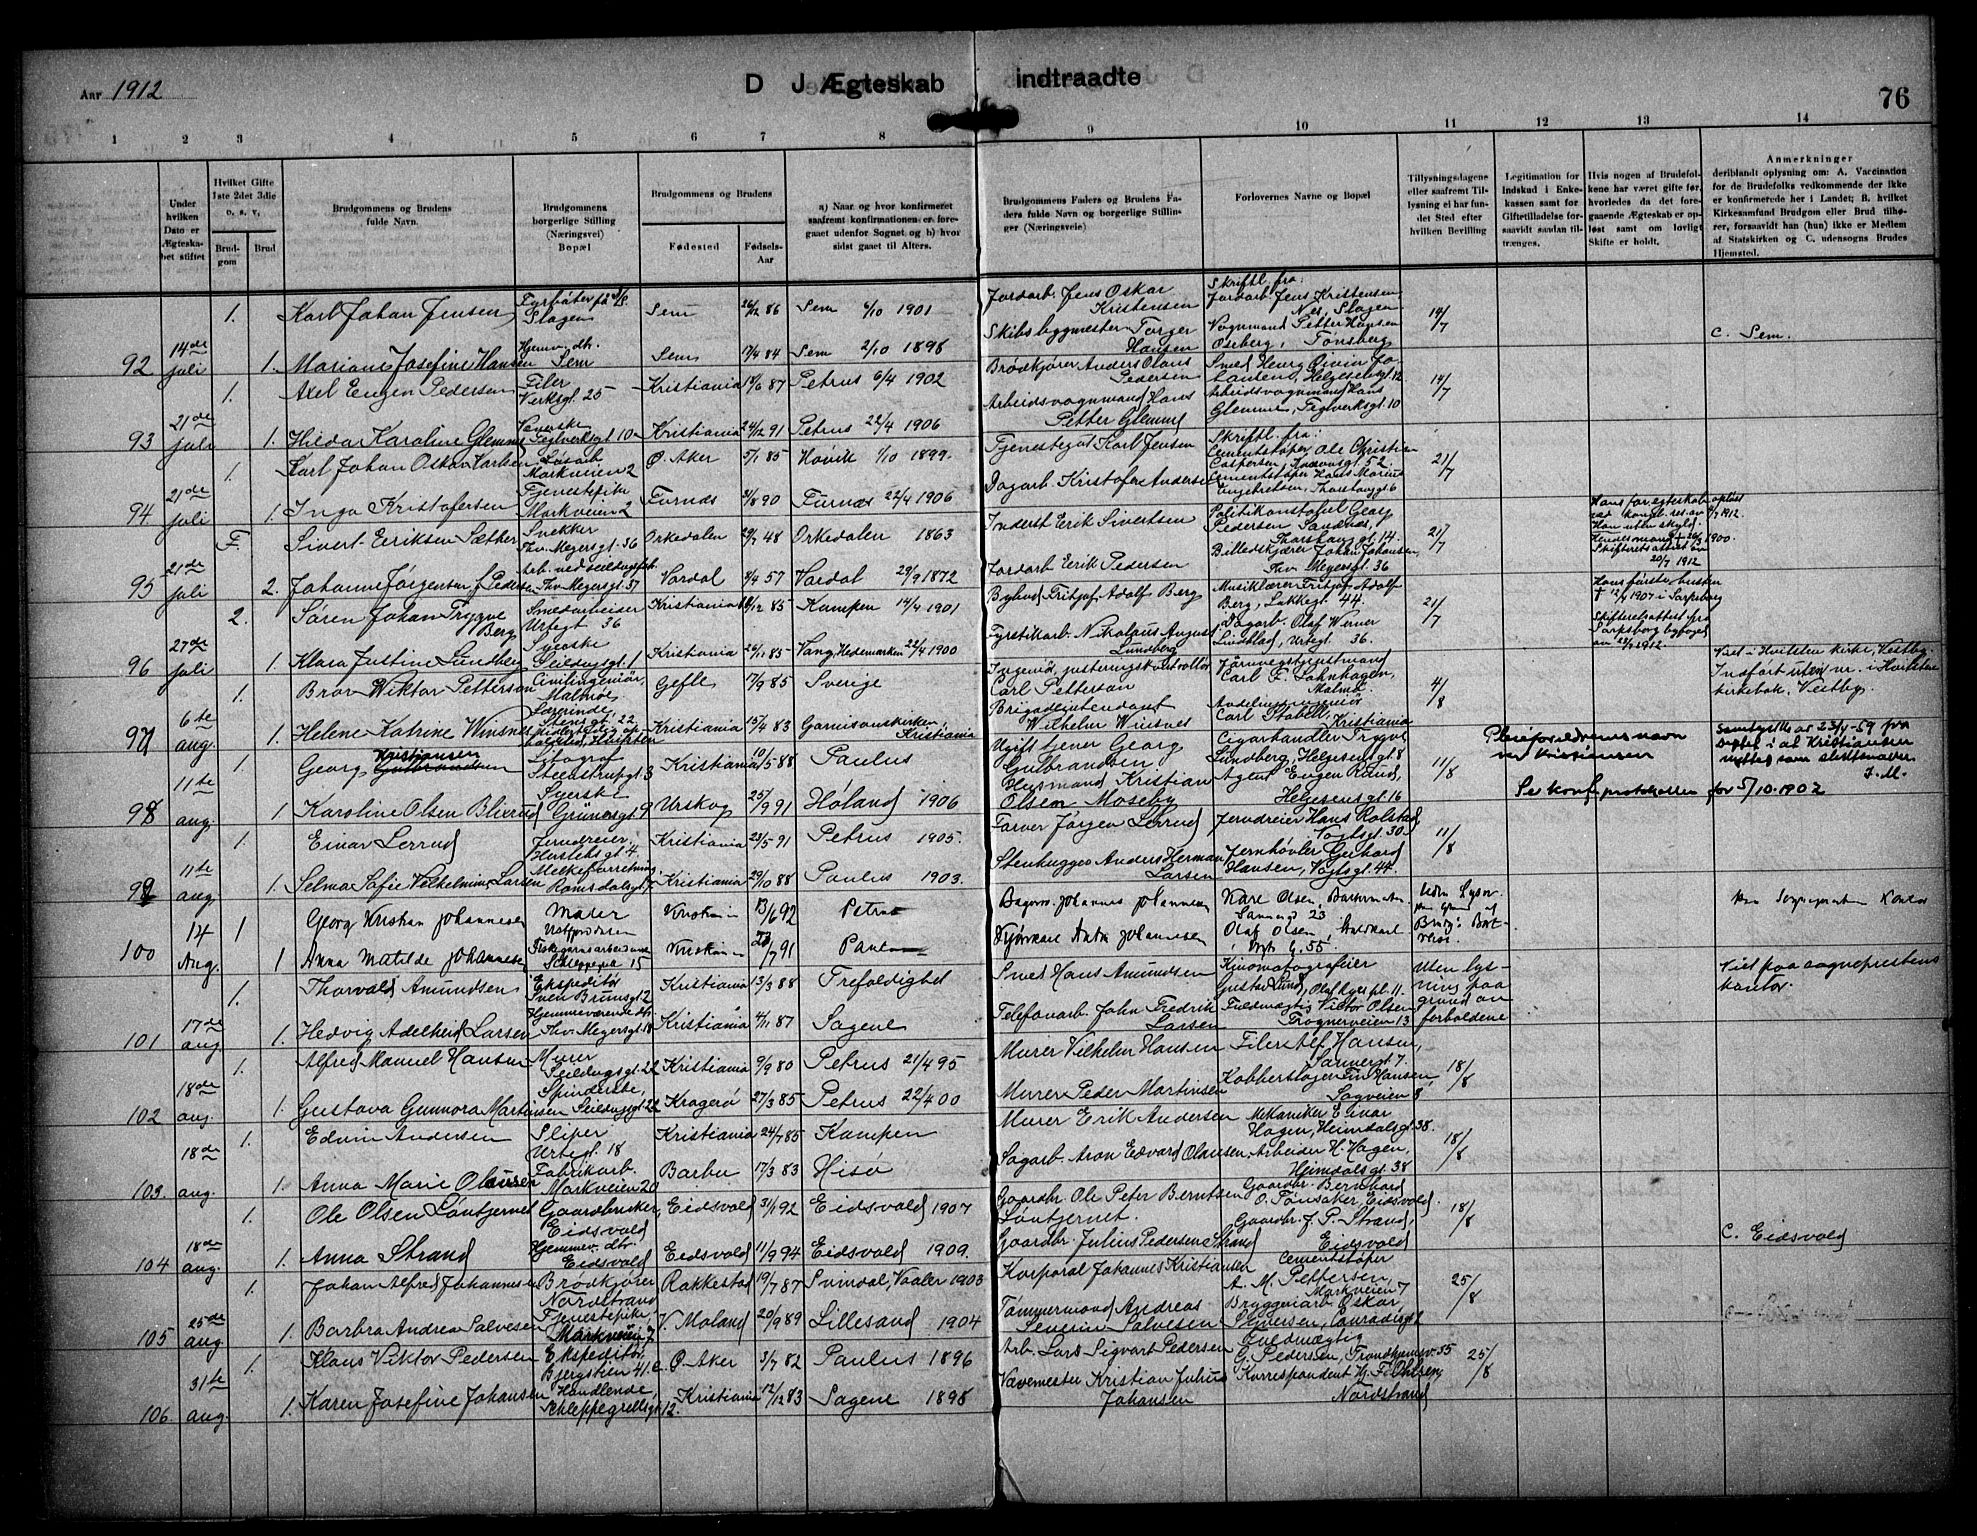 Aar 1912
D J Ægteskab indtraadte
76
1 2 3 4 5 6 7 8 9 10 11 12 13 14
Under hvilken Dato er Ægteskabet stiftet
Hvilket Gifte 1ste 2det 3die o. s. v.
Brudgom
Brud
Brudgommens og Brudens fulde Navn.
Brudgommens borgerlige Stilling (Næringsvei) Bopæl
Brudgommens og Brudens
Fødested
Fødsels-Aar
a) Naar og hvor konfirmeret saafremt konfirmationen er foregaaet udenfor Sognet og b) hvor sidst gaaet til Alters.
Brudgommens Faders og Brudens Faders fulde Navn og borgerlige Stillinger (Næringsveie)
Forlovernes Navne og Bopæl
Tillysningsdagene eller saafremt Tillysning ei har fundet Sted efter hvilken Bevilling
Legitimation for Indskud i Enkekassen samt for Giftetilladelse forsaavidt saadan tiltrænges.
Hvis nogen af Brudefolkene har været gifte før, hvorledes da det foregaaende Ægteskab er opløst samt om lovligt Skifte er holdt.
Anmerkninger
deriblandt oplysning om: A. Vaccination for de Brudefolks vedkommende der ikke er konfirmerede her i Landet; B. hvilket Kirkesamfund Brudgom eller Brud tilhører, forsaavidt han (hun) ikke er Medlem af Statskirken og C. udensogns Brudes Hjemsted.
92 14de juli
1. Karl Johan Jensen Fyrbøter på Slagen Sem 26/12 86 Sem 6/10 1901 Jordarb. Jens Oskar Kristensen Skriftl. fra: Jordarb. Jens Kristensen Nes, Slagen 14/7
1. Mariane Josefine Hansen Hjemv. dtr. Sem Sem 17/4 84 Sem 2/10 1898 Skibsbyggmester Torger Hansen Vognmand Petter Hansen Oseberg, Tønsberg C. Sem.
93 21de juli
1. Axel Eugen Pedersen Filer Verksgt. 25 Kristiania 18/6 87 Petrus 6/4 1902 Brødkjører Anders Olaus Pedersen Smed Henry Helgesensgt. 12 14/7
1. Hilda Karoline Glemme Teglverksgt 10 Kristiania 24/12 91 Petrus 22/4 1906 Arbeidsvognmand Hans Petter Glemme Arbeidsvognmand Hans Glemme, Teglverksgt. 10
94 21de juli
1. Karl Johan Oskar Karlsen Markveien 2 Ø. Aker 5/1 85 Høvik 1/10 1899. Tjenestegut Karl Jensen Skriftl. fra: Cementstøper Ole Christian Caspersen, 52 21/7
1. Inga Kristofersen Tjenestepike Markveien 2 Furnes 31/8 90 Furnes 22/4 1906 Dagarb. Kristofer Andersen Cementstøper Hans Marius Engebretsen, Thorshauggt 6
95 21de juli
F. Sivert Eriksen Sæther Snekker Thv. Meyersgt. 36 Orkedalen 29/7 48 Orkedalen 1863 Inderst Erik Sivertsen Politikonstabel Georg Pedersen Sandnes, Thorshauggt. 14. 21/7
Hans før. egteskab opløst ved kongel. res. av 1912. Han uten skyld.
2. Johanne Jørgensen f. Pedersen Arb. ved seildugsfabr. Thv. Meyersgt. 37 Vardal 4/4 57 Vardal 29/9 1872 Jordarb Erik Pedersen Billedskjærer Johan Johansen, Thv. Meyersgt. 36
Hendes mand † 1900. Skifteretsattest av 20/7 1912
96 27de juli
2. Søren Johan Trygve Berg Smedarbeider Urtegt 36 Kristiania 85 Kampen 14/4 1901 Bybud Fritjof Adolf Berg Musiklærer Fritjof Adolf Berg, Lakkegt. 44. 21/7
Hans første hustru † 1907 i Sarpsborg Skifteretsattest fra Sarpsborg byfoged av 1912.
1 Klara Justine Lundberg Syerske Seildugsgt. 1 Kristiania 26/11 85 Vang, Hedemarken 22/4 1900 Fyrstikarb. Nikolaus August Lundberg Dagarb. Olaf Werner Lindblad, Urtegt. 36.
97 6te aug.
1. Bror Wiktor Petterson Civilingeniør, Malmø. Gefle 17/9 85 Sverige Carl Petterson Carl F. Malmø. 4/8
Viet i Hvitsten kirke, Vestby. Indført uten nr. i Hvitsten kirkebok, Vestby.
1. Helene Katrine Winsnes Lærerinde, Stensgt. 22 Kristiania 15/4 83 Garnisonskirken, Kristiania Brigadeintendant Wilhelm Winsnes Carl Stabell, Kristiania
98 11te aug.
1 Georg Gulbrandsen Kristiansen Steenstrupsgt. 3 Kristiania 10/5 88 Paulus Ugift tjener Georg Gulbrandsen Cigarhandler Trygve Lundberg, Helgesensgt 8 11/8
Pleieforældrenes navn var Kristiansen
Samtykke av 23/4-59 fra til at Kristiansen nyttes som slektsnavn. J.M.
1 Karoline Olsen Blixrud Syerske Grünersgt. 9 Urskog 25/9 91 Høland 1906 Husmand Kristian Olsen Moseby Agent Eugen Raud, Helgesensgt. 16
Se konf.protokollen for 5/10.1902
99 11te aug
1. Einar Lerrud Jerndreier, Herslebsgt. 4 Kristiania 23/5 91 Petrus 1905. Farver Jørgen Lerrud Jerndreier Hans Rolstad, Vogtsgt. 30 11/8
1. Selma Sofie Vilhelmine Larsen Melkeforretning Romsdalsgt. 7 Kristiania 29/10 88 Paulus 1903. Stenhugger Anders Herman Larsen Jernhøvler Gerhard Hansen, Vogtsgt. 44.
100 14 Aug.
1 Georg Kristian Johannesen Maler 13/6 92 Petrus Johannes Johannesen Kare Olsen, 23 Uden Lysn.
1 Anna Matilde Johannesen Schleppegr 15 91 Paulus Johannesen Olaf Olsen, 55.
101 17de aug
1. Thorvald Amundsen Ekspeditør Sven Brunsgt 2 Kristiania 13/3 88 Trefoldighed Smed Hans Amundsen Kinomatografeier Gustav Lund, Olaf Ryes pl. 11. Uten lysning paa grund av forholdene
Viet paa sogneprestens kontor.
1. Hedvig Adelheid Larsen Hjemmeværende dtr. Thv. Meyersgt. 18 Kristiania 4/11 87 Sagene Telefonarb. John Fredrik Larsen Fuldmægtig Viktor Olsen, Frognerveien 13
102 18de aug.
1. Alfred Manuel Hansen Murer Seildugsgt. 22 Kristiania 9/9 80 Petrus 21/4 95 Murer Vilhelm Hansen Filer Hansen, Sannergt 7. 18/8
1. Gustava Gunnora Martinsen Spinderske, Seildugsgt 22 Kragerø 27/3 85 Petrus 22/4 00 Murer Peder Martinsen Kobberslager Hansen, Sagveien 8
103 18de aug.
1. Edvin Andersen Sliper Urtegt. 18 Kristiania 24/7 85 Kampen Murer Erik Andersen Mekaniker Einar Hagen, Heimdalsgt. 38. 18/8
1. Anna Marie Olausen Fabrikarb. Markveien 20 Barbu 17/3 83 Hisø Sagarb. Aron Edvard Olausen Arbeider H. Hagen, Heimdalsgt. 38
104 18de aug.
1. Ole Olsen Løntjernet Gaardbruker, Eidsvold Eidsvold 31/1 92 Eidsvold 1907 Gaardbr. Ole Peter Berntsen Løntjernet. Gaardbr. Bernhard O. Tønsaker, Eidsvold. 18/8
1. Anna Strand Hjemmev. dtr. Eidsvold Eidsvold 11/9 94 Eidsvold 1909. Gaardbr. Julius Pedersen Strand Gaardbr. J. P. Strand, Eidsvold C. Eidsvold
105 25de aug
1. Johan Alfred Johannesen Brødkjører Nordstrand Rakkestad 19/7 87 Svindal, Vaaler 1903 Korporal Johannes Kristiansen Cementstøper A. M. Pettersen, Markveien 7 25/8
1. Barbra Andrea Salvesen Tjenestepike, Markveien 7 V. Moland 20/9 89 Lillesand 1904 Tømmermand Andreas Severin Salvesen Bryggeriarb. Oskar Sivertsen, Conradisgt
106. 31te aug.
1. Klaus Viktor Pedersen Ekspeditør Bjergstien 41. Ø. Aker 3/7 82 Paulus 1896 Arb. Lars Sigvart Pedersen Fuldmægtig G. Pedersen, Trondhjemsv. 55 25/8
1. Karen Josefine Johansen Handlende, Schleppegrellsgt 12. Kristiania 12/12 83 Sagene 1898 Vævemester Kristian Julius Johansen Korrespondent Hj. F. Ohlsen, Nordstrand